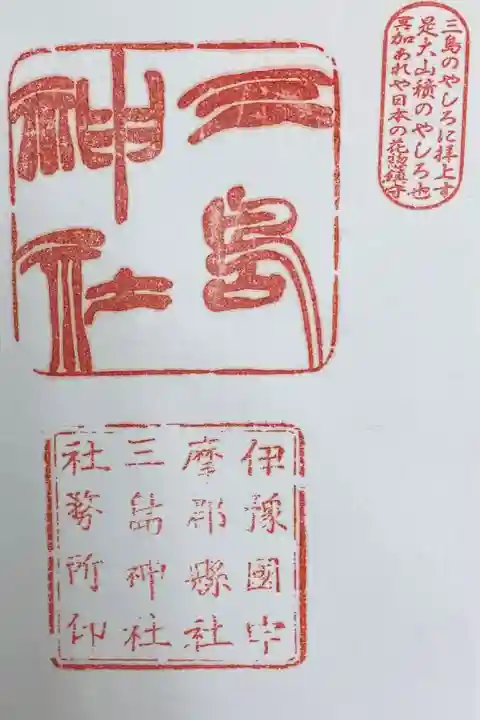 三島のやしろに拝上す
是大山積のやしろ也
冥加あれや日本の花惣鎮守
三島
神社
伊豫國中
摩郡縣社
三島神社
社務所印